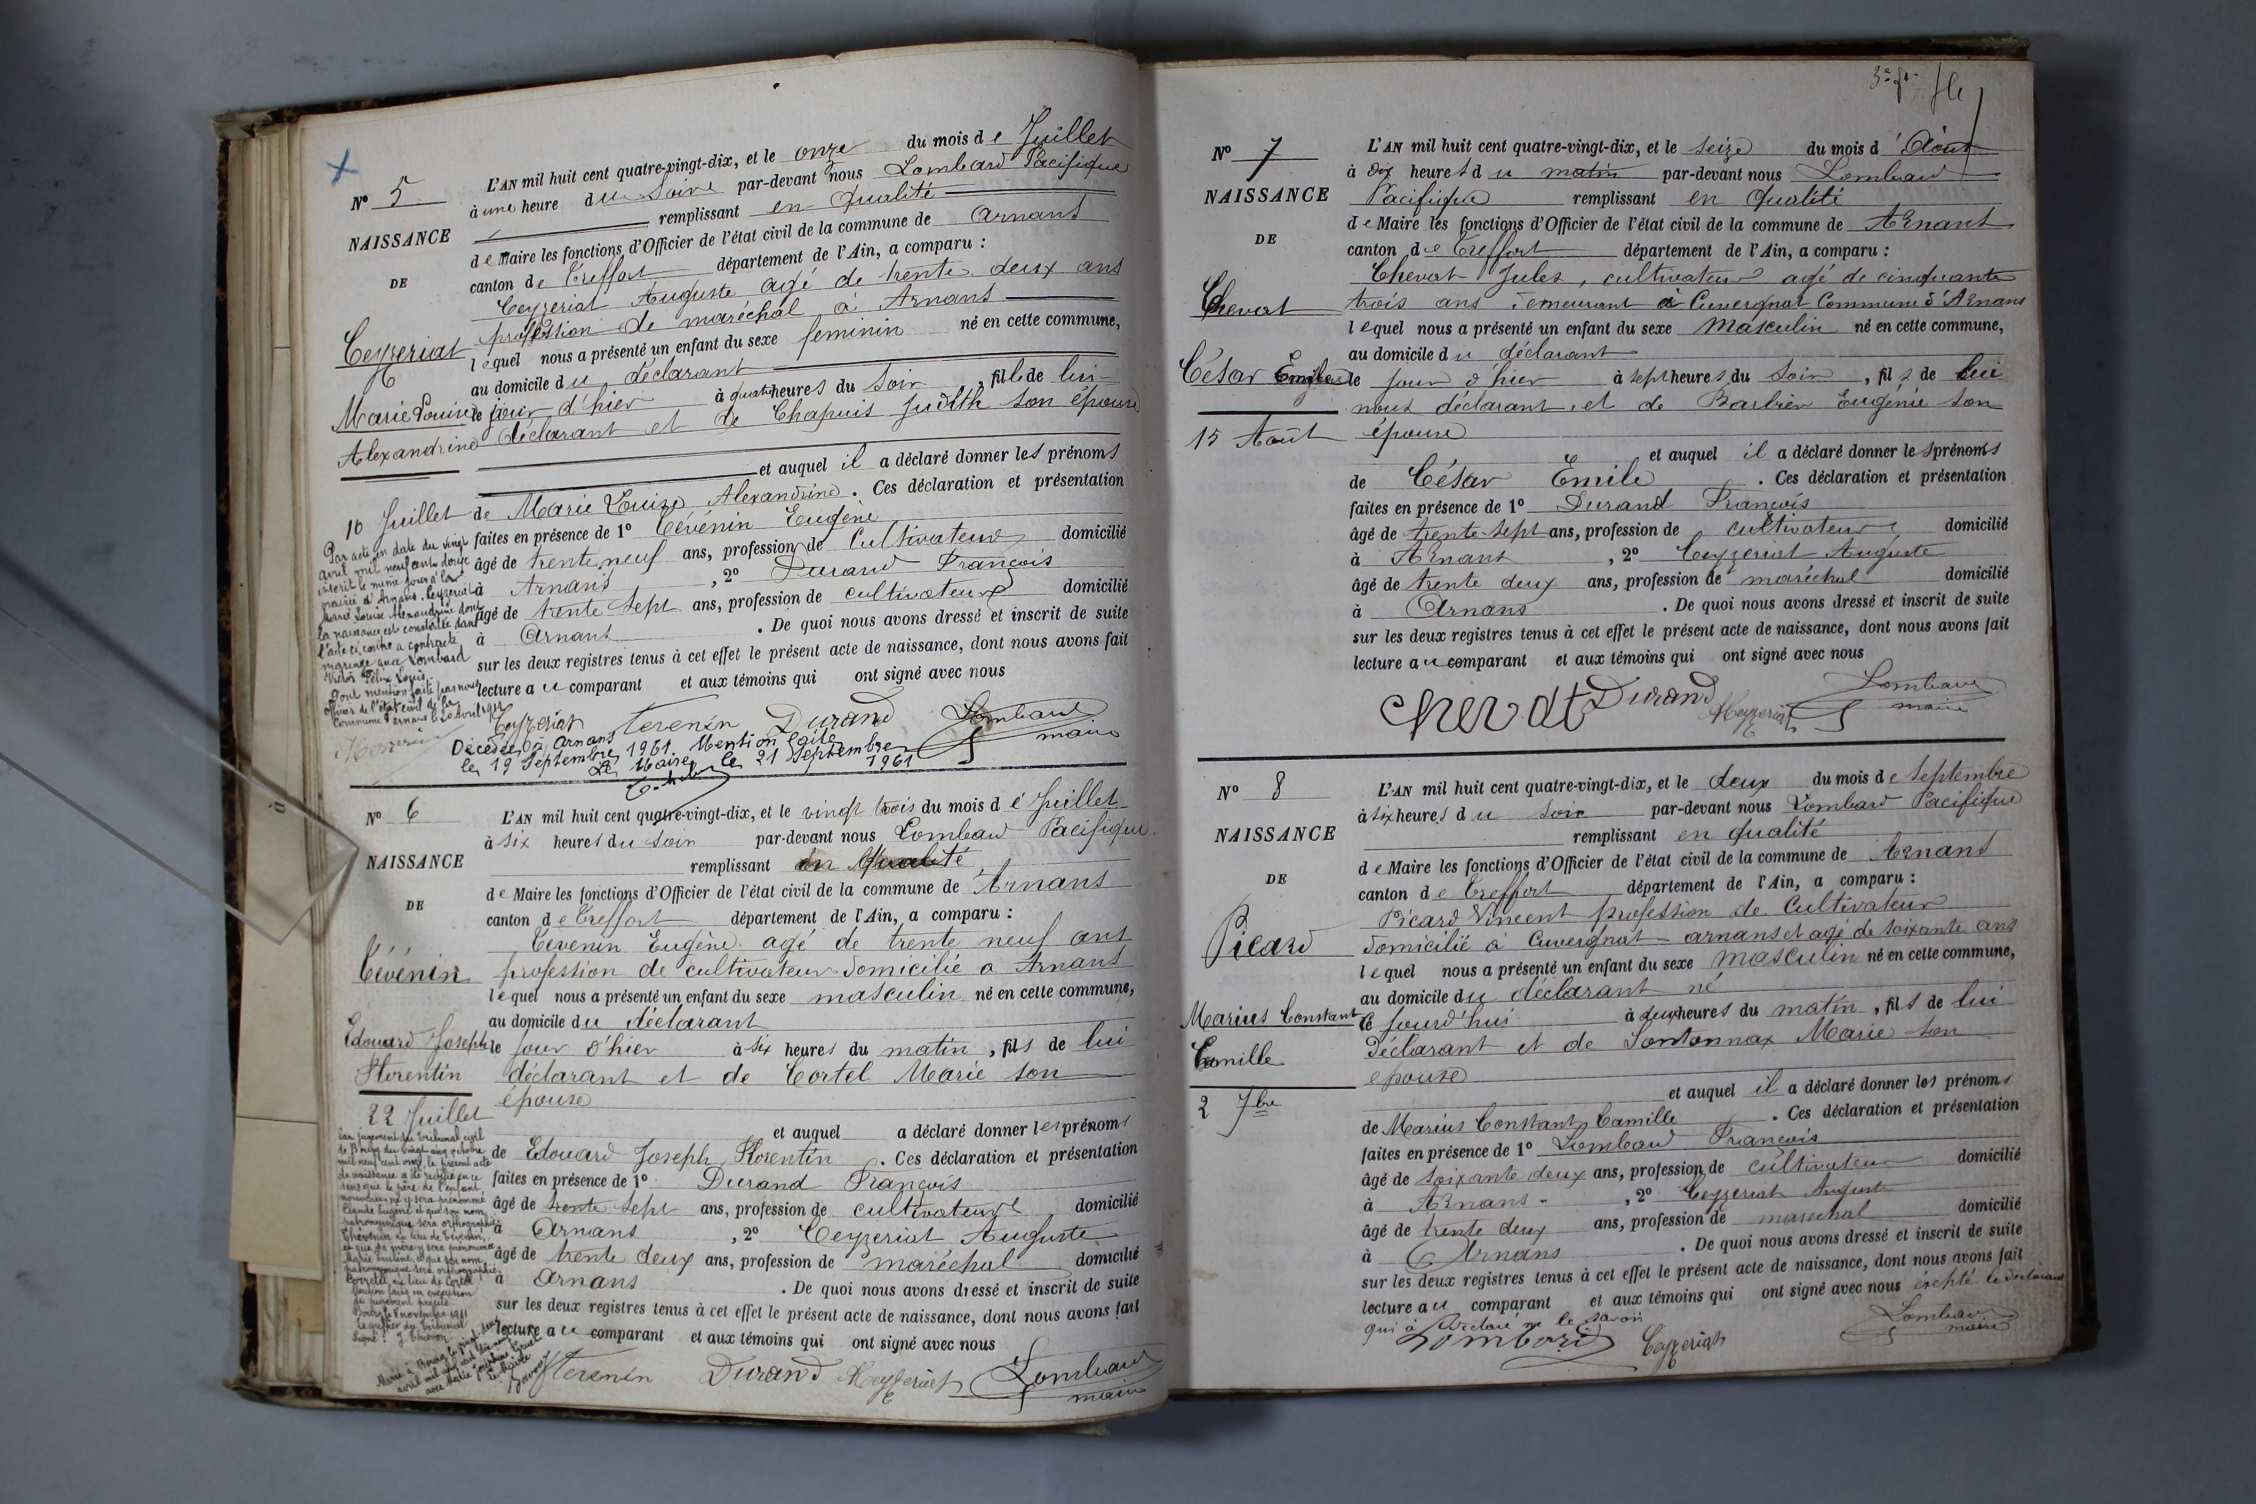 N° 5
NAISSANCE
DE
Ceyzeriat
Marie Louise
Alexandrine
10 Juillet
Par acte en date du vingt
avril mil neuf cent douze
inscrit le même jour à la
mairie d'Arnans, Ceyzeriat
Marie Louise Alexandrine dont
la naissance est constatée dans
l'acte ci contre a contracté
mariage avec Lombard
Victor Félix Louis
Dont mention faite par nous
officier de l'état civil de la
commune d'Arnans le 20 avril 1912
L'AN mil huit cent quatre-vingt-dix, et le onze du mois de Juillet
à une heure du Soire par-devant nous Lombard Pacifique
remplissant en Qualité
de Maire les fonctions d'Officier de l'état civil de la commune de Arnans
canton de Treffort département de l'Ain, a comparu :
Ceyzeriat Auguste agé de trente deux ans
profession de maréchal à Arnans
lequel nous a présenté un enfant du sexe feminin né en cette commune,
au domicile du déclarant
le jour d'hier à quatre heures du Soir, fille de lui
déclarant et de Chapuis Judith son épouse
et auquel il a déclaré donner les prénoms
de Marie Louise Alexandrine. Ces déclaration et présentation
faites en présence de 1° Cévénin Eugène
âgé de trente neuf ans, profession de Cultivateur domicilié
à Arnans, 2° Durand François
âgé de trente Sept ans, profession de cultivateur domicilié
à Arnans. De quoi nous avons dressé et inscrit de suite
sur les deux registres tenus à cet effet le présent acte de naissance, dont nous avons fait
lecture au comparant et aux témoins qui ont signé avec nous
Ceyzeriat Terenin Durand Lombard
maire
Décédée à Arnans
le 19 Septembre 1961. Mention faite
Le Maire, le 21 Septembre
1961
N° 6
NAISSANCE
DE
Cévénin
Edouard Joseph
Florentin
22 Juillet
Par jugement du Tribunal civil
de Bourg du vingt cinq octobre
mil neuf cent onze, le présent acte
de naissance a été rectifié en ce
sens que le père de l'enfant
nouveau-né y sera prénommé
Claude Eugène et que son nom
patronymique sera orthographié
Thévenin au lieu de Cévénin,
et que sa mère y sera prénommée
Marie et que son nom
patronymique sera orthographié
au lieu de Cortel
Mention faite en exécution
du jugement précité
Bourg le 8 novembre 1911
Le greffier du Tribunal
Signé : J.
Marié à Bourg le vingt
avril mil neuf cent
avec Marie Joséphine
L'AN mil huit cent quatre-vingt-dix, et le vingt trois du mois de Juillet
à six heures du soir par-devant nous Lombard Pacifique
remplissant en Qualité
de Maire les fonctions d'Officier de l'état civil de la commune de Arnans
canton de Treffort département de l'Ain, a comparu :
Cévenin Eugène agé de trente neuf ans
profession de cultivateur domicilié a Arnans
lequel nous a présenté un enfant du sexe masculin né en cette commune,
au domicile du déclarant
le jour d'hier à six heures du matin, fils de lui
déclarant et de Cortel Marie son
épouse
et auquel a déclaré donner les prénoms
de Edouard Joseph Florentin. Ces déclaration et présentation
faites en présence de 1° Durand François
âgé de trente Sept ans, profession de cultivateur domicilié
à Arnans, 2° Ceyzeriat Auguste
âgé de trente deux ans, profession de maréchal domicilié
à Arnans. De quoi nous avons dressé et inscrit de suite
sur les deux registres tenus à cet effet le présent acte de naissance, dont nous avons fait
lecture au comparant et aux témoins qui ont signé avec nous
Terenin Durand Ceyzeriat Lombard
maire
N° 7
NAISSANCE
DE
Chevat
César Emile
15 Août
L'AN mil huit cent quatre-vingt-dix, et le seize du mois d'Août
à dix heures du matin par-devant nous Lombard
Pacifique remplissant en Qualité
de Maire les fonctions d'Officier de l'état civil de la commune de Arnans
canton de Treffort département de l'Ain, a comparu :
Chevat Jules, cultivateur agé de cinquante
trois ans demeurant à Cuvergnat Commune d'Arnans
lequel nous a présenté un enfant du sexe Masculin né en cette commune,
au domicile du déclarant
le jour d'hier à sept heures du Soir, fils de lui
nous déclarant, et de Barbier Eugénie son
épouse
et auquel il a déclaré donner les prénoms
de César Emile. Ces déclaration et présentation
faites en présence de 1° Durand François
âgé de trente sept ans, profession de cultivateur, domicilié
à Arnans, 2° Ceyzeriat Auguste
âgé de trente deux ans, profession de maréchal domicilié
à Arnans. De quoi nous avons dressé et inscrit de suite
sur les deux registres tenus à cet effet le présent acte de naissance, dont nous avons fait
lecture au comparant et aux témoins qui ont signé avec nous
Chevat Durand Ceyzeriat Lombard
maire
N° 8
NAISSANCE
DE
Picard
Marius Constant
Camille
2 7bre
L'AN mil huit cent quatre-vingt-dix, et le deux du mois de Septembre
à six heures du soir par-devant nous Lombard Pacifique
remplissant en qualité
de Maire les fonctions d'Officier de l'état civil de la commune de Arnans
canton de Treffort département de l'Ain, a comparu :
Picard Vincent profession de Cultivateur
domicilié à Cuvergnat - arnans et agé de soixante ans
lequel nous a présenté un enfant du sexe masculin né en cette commune,
au domicile du déclarant né
le jourd'hui à deux heures du matin, fils de lui
déclarant et de Sontonnax Marie son
epouse
et auquel il a déclaré donner les prénoms
de Marius Constant Camille. Ces déclaration et présentation
faites en présence de 1° Lombard François
âgé de soixante deux ans, profession de cultivateur domicilié
à Arnans, 2° Ceyzeriat Auguste
âgé de trente deux ans, profession de maréchal domicilié
à Arnans. De quoi nous avons dressé et inscrit de suite
sur les deux registres tenus à cet effet le présent acte de naissance, dont nous avons fait
lecture au comparant et aux témoins qui ont signé avec nous éxepté le déclarant
qui à déclaré ne le savoir
Lombard Ceyzeriat Lombard
maire